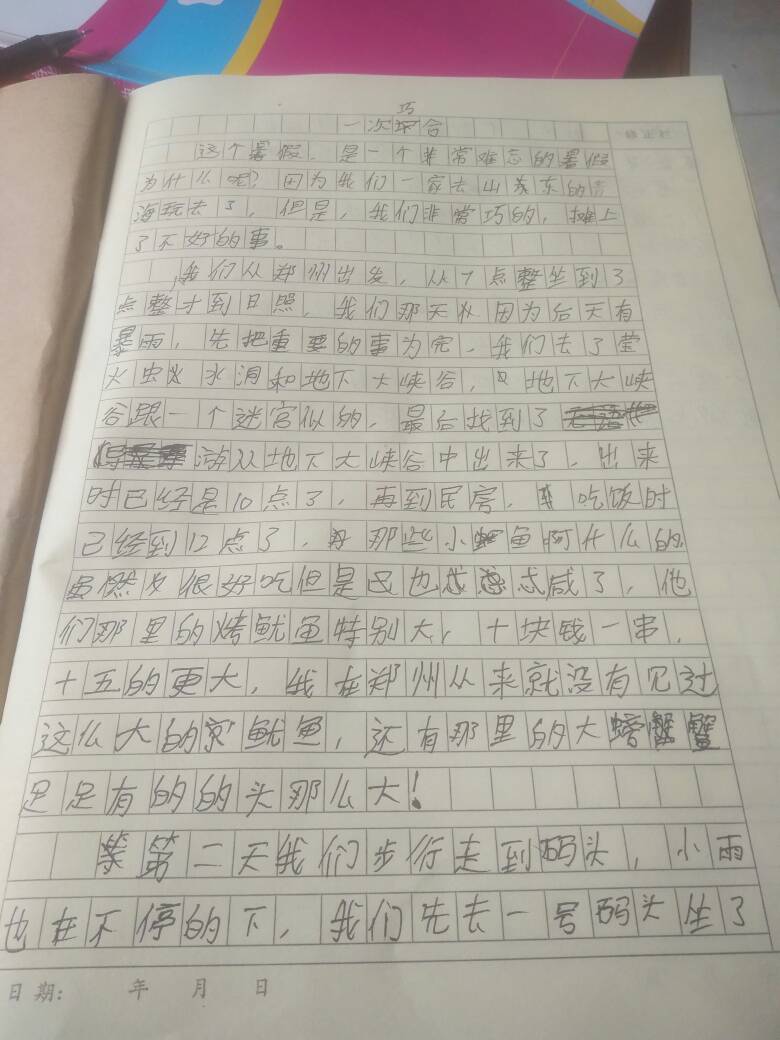 巧
一次合
这个暑假，是一个非常难忘的暑假
为什么呢？因为我们一家去山东的
海玩去了，但是，我们非常巧的，摊上
了不好的事。
我们从郑州出发，从7点整坐到了
点整才到日照，我们那天因为后天有
暴雨，先把重要的事为完，我们去了莹
火虫水洞和地下大峡谷，地下大峡
谷跟一个迷宫似的，最后找到了
游从地下大峡谷中出来了，出来
时已经是10点了，再到民房，吃饭时
已经到12点了，那些小鱼阿什么的，
虽然很好吃但是也忒咸了，他
们那里的烤鱿鱼特别大，十块钱一串，
十五的更大，我在郑州从来就没有见过
这么大的鱿鱼，还有那里的大螃蟹
足足有的的头那么大！
第二天我们步行走到码头，小雨
也在不停的下，我们先去一号码头坐了
日期： 年 月 日